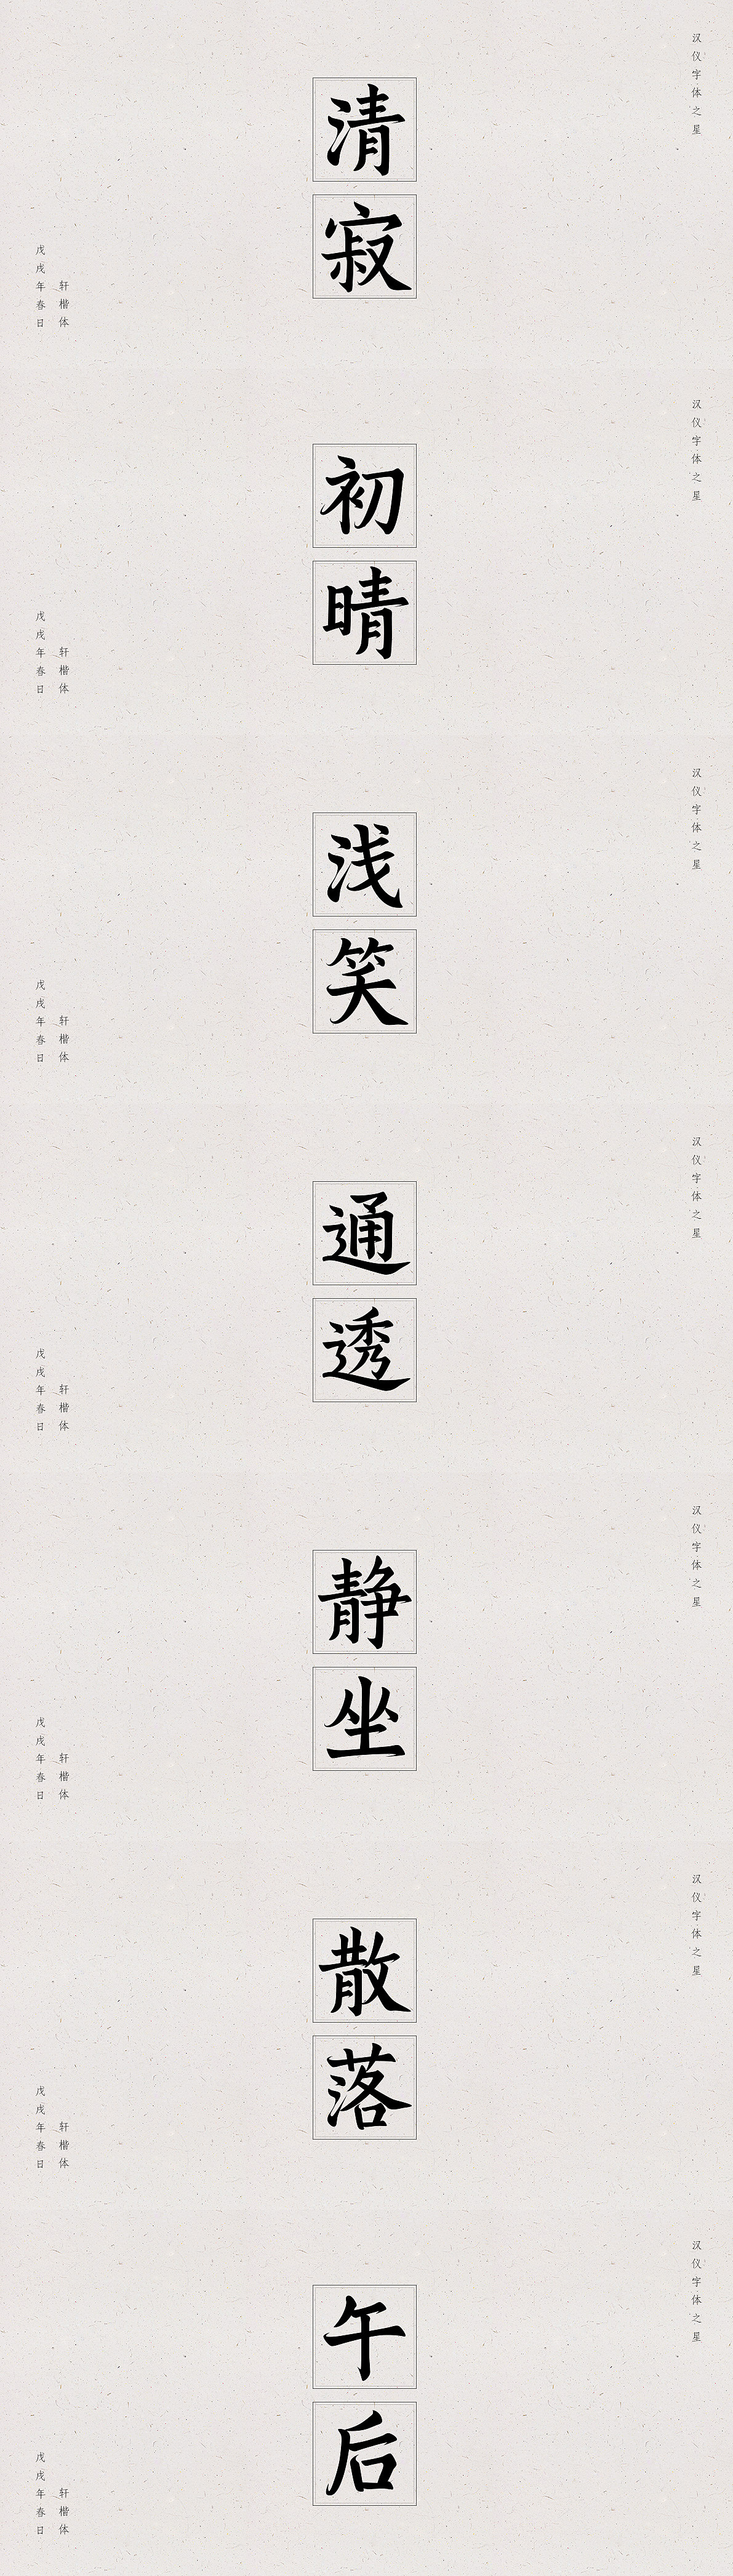 汉仪字体之星
清寂
轩楷体
戊戌年春日
汉仪字体之星
初晴
轩楷体
戊戌年春日
汉仪字体之星
浅笑
轩楷体
戊戌年春日
汉仪字体之星
通透
轩楷体
戊戌年春日
汉仪字体之星
静坐
轩楷体
戊戌年春日
汉仪字体之星
散落
轩楷体
戊戌年春日
汉仪字体之星
午后
轩楷体
戊戌年春日